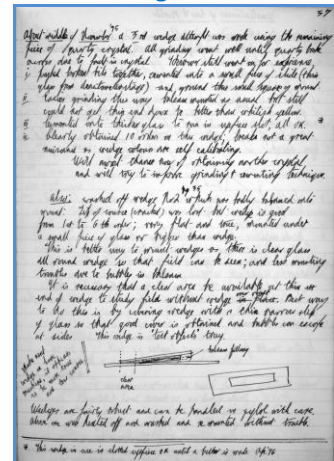 57
75
About middle of November a 3rd wedge attempt was made using the remaining
piece of quartz crystal. All grinding went well until quartz broke
across due to fault in crystal. However still went on for experience,
i pushed broken bits together, cemented into a small piece of slide (thin
glass from ) and ground this small square down
ii Later grinding this way balsam mounted as usual but still
could not get thin end down to better than whitish yellow.
iii Cemented into thicker glass to run in uppers slot, all ok.
iv Clearly obtained 10 orders on this wedge; makes not a great
nuisance as wedge colours are self calibrating.
Will await chance now of obtaining another crystal,
and will try to improve grinding & cementing technique.
75
Also: washed off wedge No2 which was badly balsamed onto
mount. Tip of source (crack) was lost but wedge is good
from 1st to 6th order; very flat and true, mounted under
a small piece of glass no higher than wedge.
This is better way to mount wedges as there is clear glass
all round wedge so that field can be seen; and less mounting
troubles due to bubbles in balsam.
It is necessary that a clear area be available at thin
end of wedge to study field without wedge in place. Best way
to do this is by covering wedge with a thin narrow slip
of glass so that good cover is obtained and bubbles can escape
at sides. This wedge is "test objects" tray.
balsam filling
clear
area
Wedges are fairly robust and can be handled in xylol with care.
When on was heated off and washed and remounted without trouble.
* This wedge in use in slotted uppers ok until a better is made Apr '76